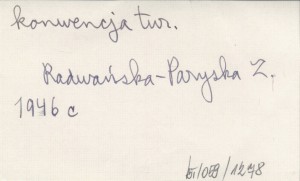 konwencja tur.
Radwańska-Paryska Z.
1946 c
bi/059/1278